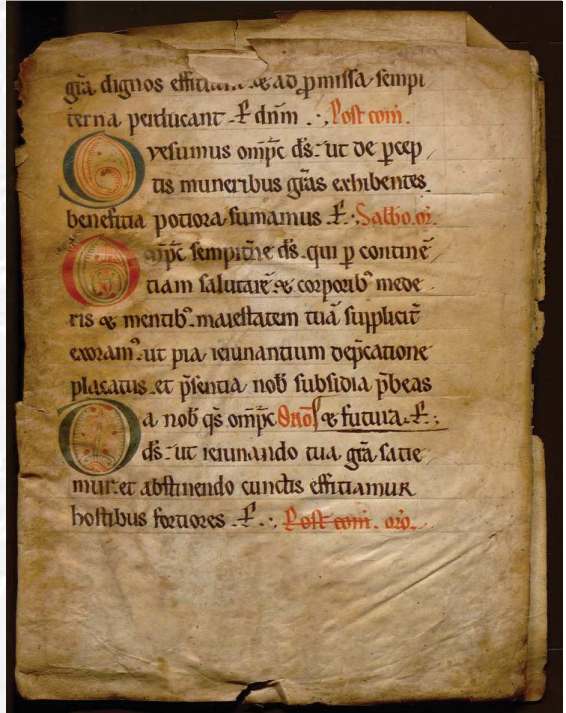 gr̄a dignos efficiant & ad p̱missa sempi
terna perducant .P̱ dn̄m . Post com̄.
Q vesumus omp̄c d̄s. ut de p̱cep
tis muneribus gr̄as exhibentes
beneficia potiora sumamus .P̱. Sabbo. or̄.
O mp̄c sempit̄ne d̄s. qui p̱ continē
tiam salutarē & corporibꝰ mede
ris & mentibꝰ. maiestatem tuā supplicit̄
exoramꝰ. ut pia ieiunantium dep̄catione
placatus. et p̄sentia nob̄ subsidia p̄beas
D a nob̄ q̄s omp̄c Or̄o & futura. P̱.
d̄s. ut ieiunando tua gr̄a sacie
mur. et abstinendo cunctis efficiamur
hostibus fortiores .P̱. Post com̄. or̄o.